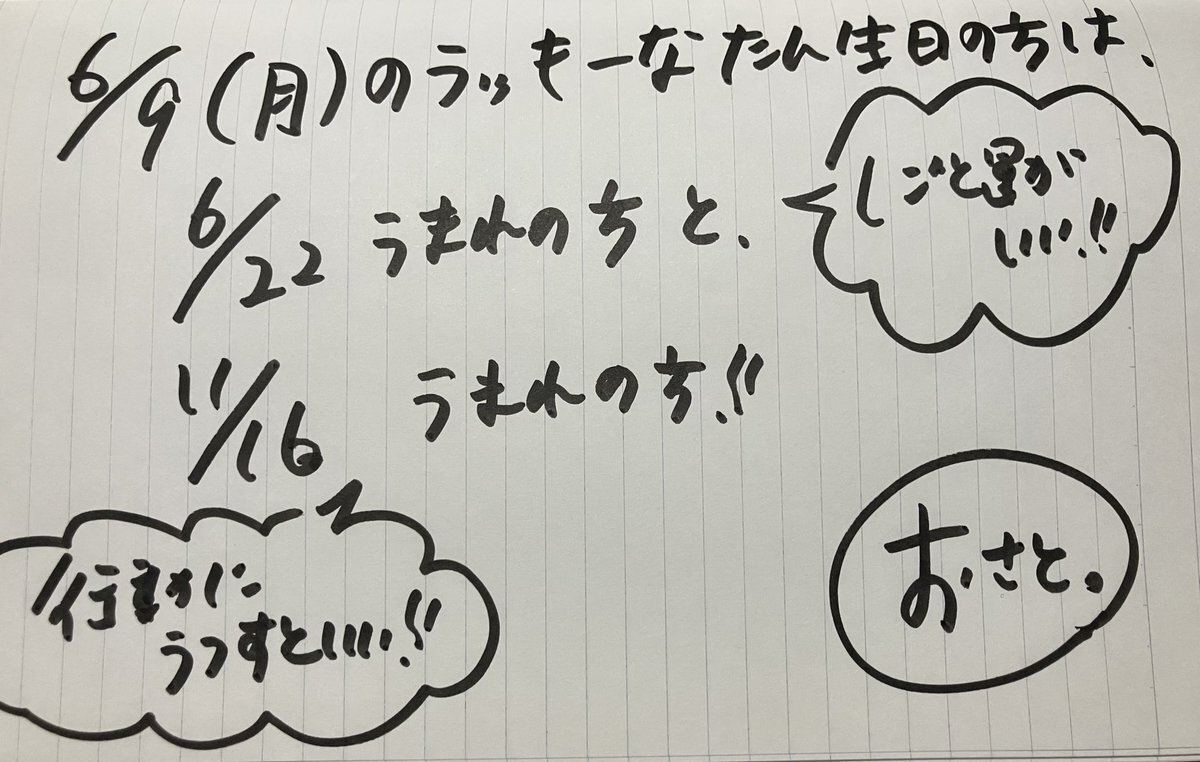 6/9(月)のラッキーなたん生日の方は、
6/22 うまれの方と、
しごと運が
いい!!
11/16 うまれの方!!
行動に
うつすといい!!
おさと。